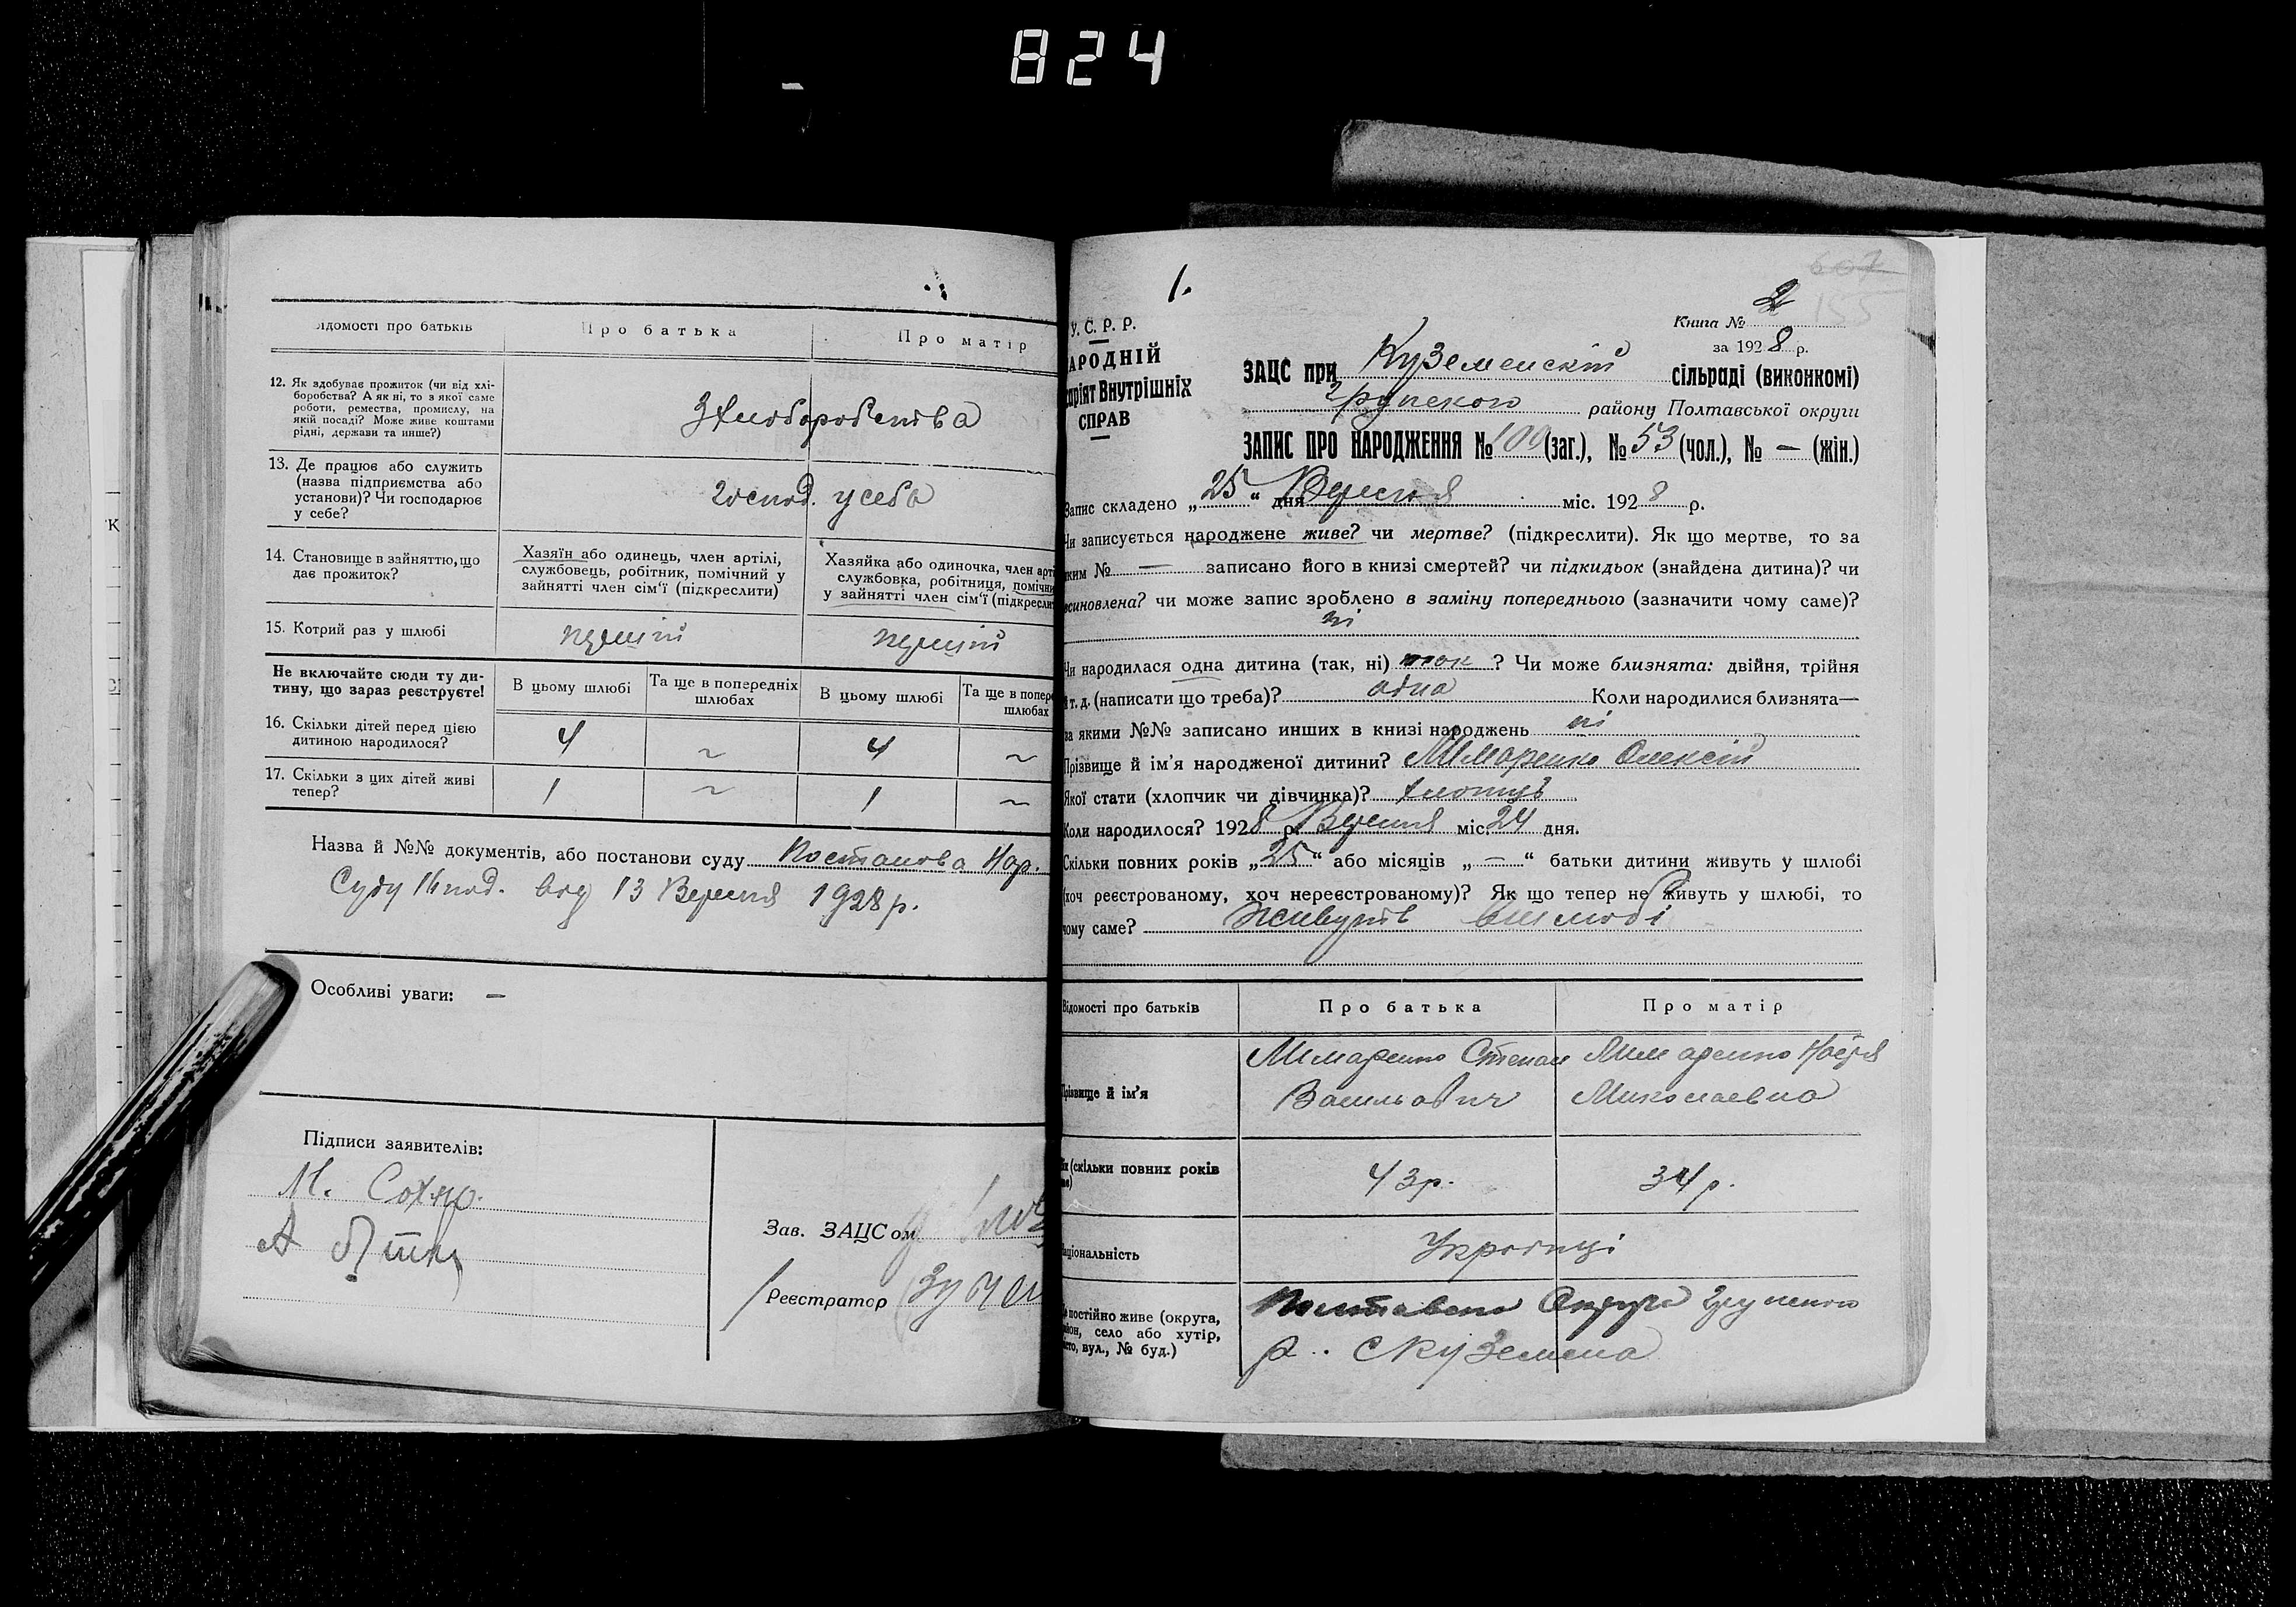 824
Відомості про батьків
Про батька
Про матір
12. Як здобуває прожиток (чи від хлі-
боробства? А як ні, то з якої саме
роботи, ремества, промислу, на
якій посаді? Може живе коштами
рідні, держави та инше?)
З хлиборобства
13. Де працює або служить
(назва підприємства або
установи)? Чи господарює
у себе?
Господ. у себе
14. Становище в зайняттю, що
дає прожиток?
Хазяїн або одинець, член артілі,
службовець, робітник, помічний у
зайнятті член сім'ї (підкреслити)
Хазяйка або одиночка, член арті
службовка, робітниця, помічни
у зайнятті член сім'ї (підкресли
15. Котрий раз у шлюбі
перший
перший
Не включайте сюди ту ди-
тину, що зараз реєструєте!
В цьому шлюбі
Та ще в попередніх
шлюбах
В цьому шлюбі
Та ще в попер
шлюбах
16. Скільки дітей перед цією
дитиною народилося?
4 ~ 4 ~
17. Скільки з цих дітей живі
тепер?
1 ~ 1 ~
Назва й №№ документів, або постанови суду Постанова Нар.
Суду від 13 Вересня 1928 р.
Особливі уваги: —
Підписи заявителів:
М.
А
Зав. ЗАЦСом
Реєстратор
1.
607
155
Книга № 2
за 1928 р.
У.С.Р.Р.
НАРОДНІЙ
Комісаріят Внутрішніх
СПРАВ
ЗАЦС при Куземенскій сільраді (виконкомі)
Грунского району Полтавської округи
ЗАПИС ПРО НАРОДЖЕННЯ № 100 (заг.), № 53 (чол.), № — (жін.)
Запис складено „25“ дня Вересня міс. 1928 р.
Чи записується народжене живе? чи мертве? (підкреслити). Як що мертве, то за
яким № — записано його в книзі смертей? чи підкидьок (знайдена дитина)? чи
всиновлена? чи може запис зроблено в заміну попереднього (зазначити чому саме)?
ні
Чи народилася одна дитина (так, ні) так ? Чи може близнята: двійня, трійня
й т. д. (написати що треба)? одна Коли народилися близнята—
за якими №№ записано инших в книзі народжень ні
Прізвище й ім'я народженої дитини? Олексій
Якої стати (хлопчик чи дівчинка)? хлопець
Коли народилося? 1928 р. Вересня міс. 24 дня.
Скільки повних років „25“ або місяців „—“ батьки дитини живуть у шлюбі
(хоч реєстрованому, хоч нереєстрованому)? Як що тепер не живуть у шлюбі, то
чому саме? живуть вшлюбі
Відомості про батьків
Про батька
Про матір
Прізвище й ім'я
Степан
Васильович
Миколаевна
Вік (скільки повних років
43 р.
34 р.
Національність
Українці
Де постійно живе (округа,
район, село або хутір,
місто, вул., № буд.)
Полтавська Округа Грунского
р. с Куземена